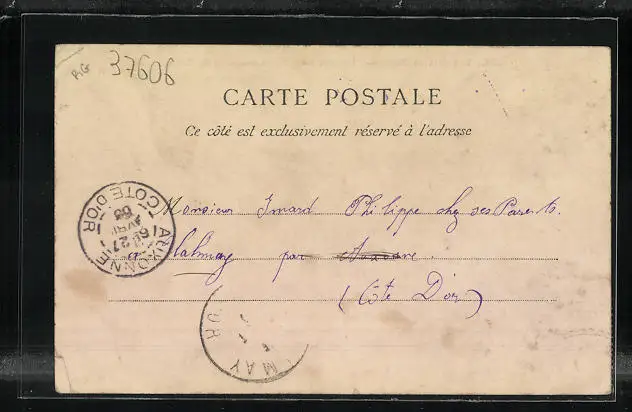 RG 37606
CARTE POSTALE
Ce côté est exclusivement réservé à l'adresse
Monsieur Imard Philippe chez ses Parents.
a Halmay par Auxonne.
(Côte D'or)
AUXONNE
CÔTE D'OR
27
AVRIL
03
MAY
OR